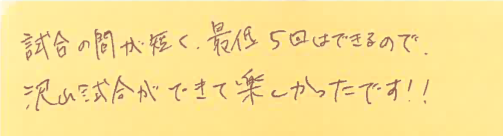 試合の間が短く、最低5回はできるので、
沢山試合ができて楽しかったです!!